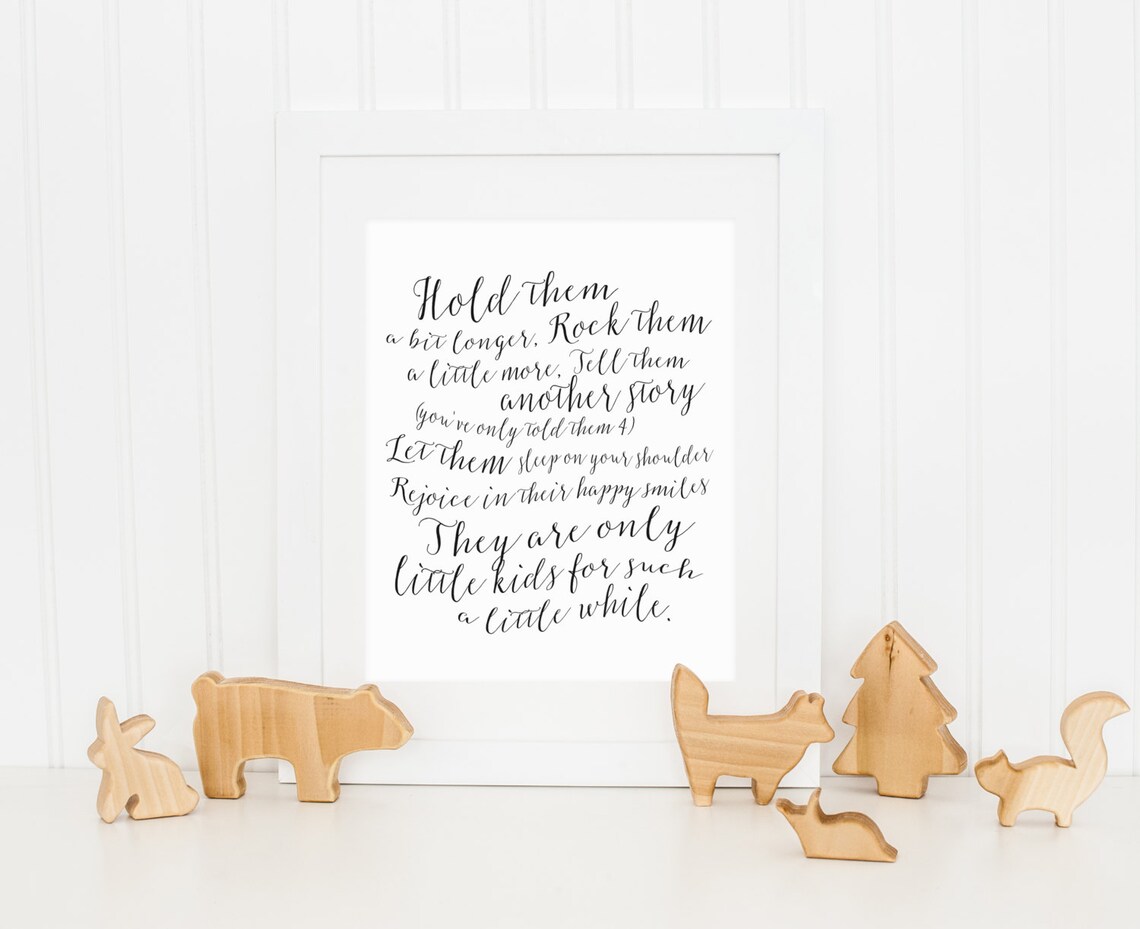 Hold them
a bit longer, Rock them
a little more, Tell them
another story
(you've only told them 4)
Let them sleep on your shoulder
Rejoice in their happy smiles
They are only
little kids for such
a little while.